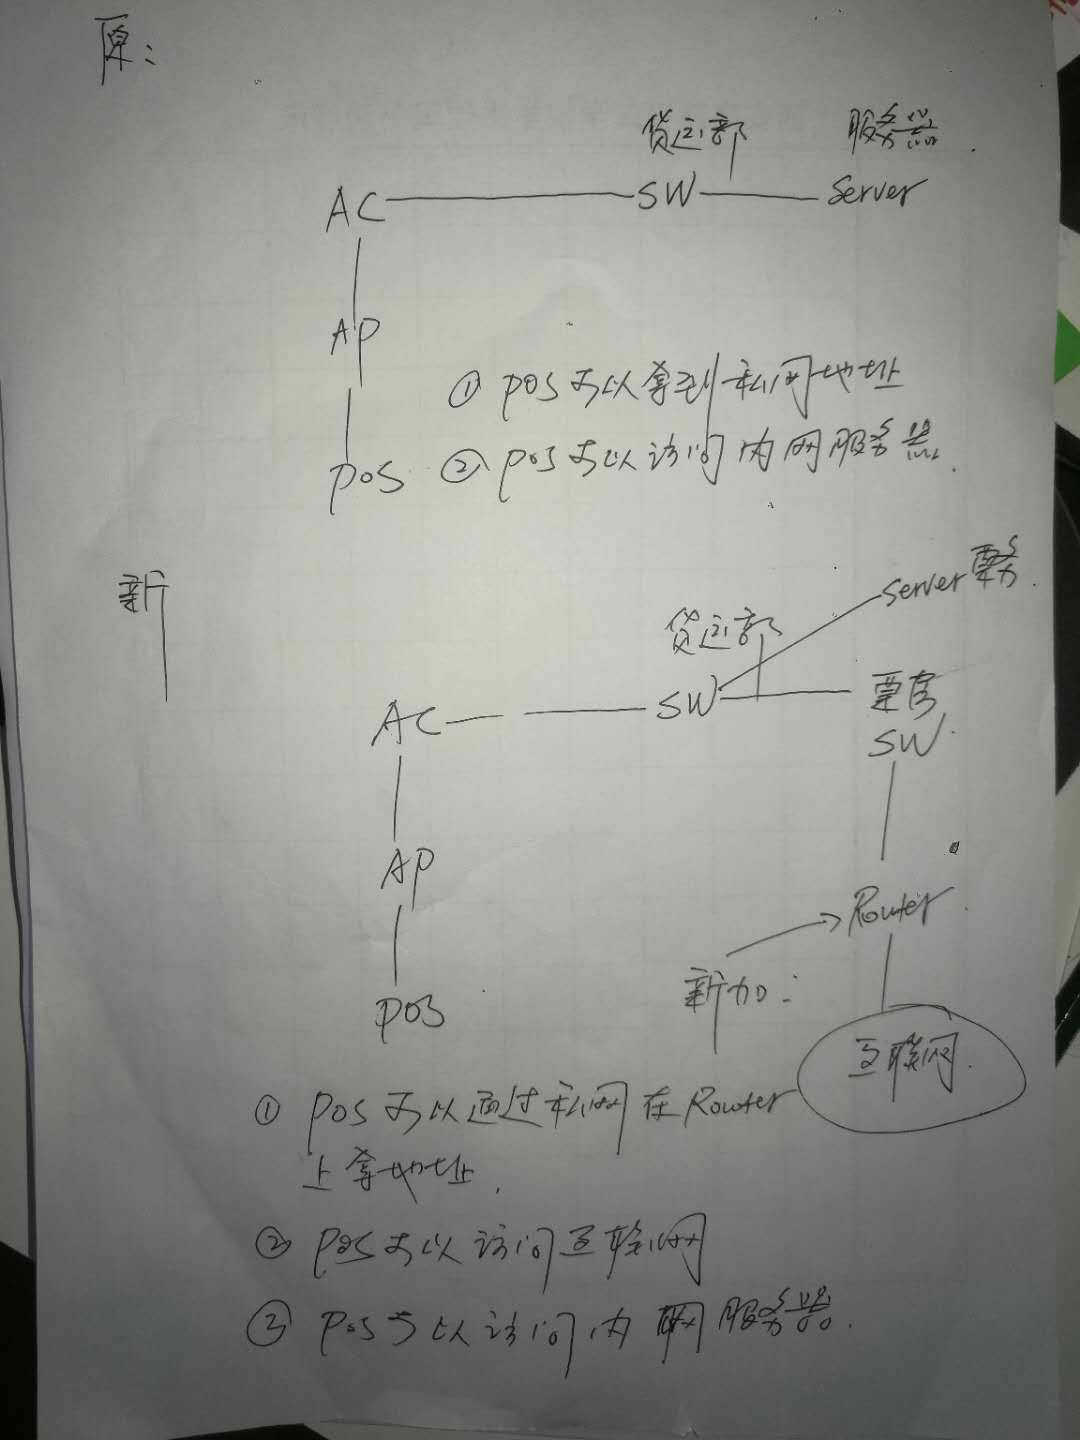 原:
货运部 服务器
AC SW Server
AP
① POS可以拿到私网地址
② POS可以访问内网服务器
POS
新
Server 票务
货运部
票房
AC SW
SW
AP
Router
新加:
POS
互联网
① POS可以通过私网在Router
上拿地址
② POS可以访问互联网
③ POS可以访问内网服务器